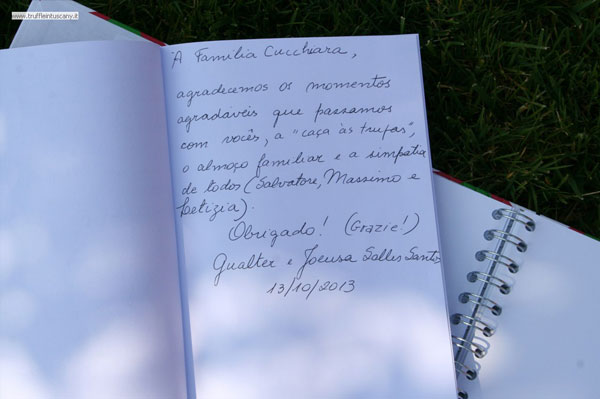 www.truffleintuscany.it
À Família Cucchiara,
agradecemos os momentos
agradáveis que passamos
com vocês, a "caça às trufas",
o almoço familiar e a simpatia
de todos (Salvatore, Massimo e
Letizia).
Obrigado! (Grazie!)
Gualter e Joeusa Salles Santos
13/10/2013